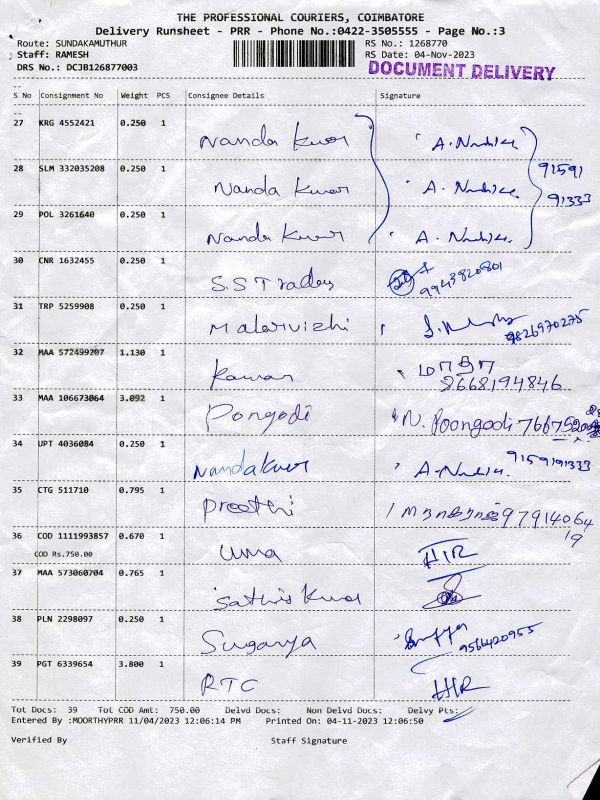 THE PROFESSIONAL COURIERS, COIMBATORE
Delivery Runsheet - PRR - Phone No.:0422-3505555 - Page No.:3
Route: SUNDAKAMUTHUR RS No.: 1268770
Staff: RAMESH RS Date: 04-Nov-2023
DRS No.: DCJB126877003 DOCUMENT DELIVERY
S No Consignment No Weight PCS Consignee Details Signature
27 KRG 4552421 0.250 1
Nanda Kumar A. Nandhi
28 SLM 332035208 0.250 1 91591
Nanda Kumar A. Nandhi 91333
29 POL 3261640 0.250 1
Nanda Kumar A. Nandhi
30 CNR 1632455 0.250 1
S.S Traders 9943820801
31 TRP 5259908 0.250 1
Malarvizhi 9826970275
32 MAA 572499207 1.130 1
Kawar
8668194846
33 MAA 106673064 3.092 1
Pongodi N. Poongodi 76675
34 UPT 4036084 0.250 1 9159191333
Nandakumar A. Nandhi
35 CTG 511710 0.795 1
Preethi 97914064
19
36 COD 1111993857 0.670 1
COD Rs.750.00 Uma HIR
37 MAA 573060704 0.765 1
Sathis Kumar
38 PLN 2298097 0.250 1
Suganya 9566420955
39 PGT 6339654 3.800 1
RTC HIR
Tot Docs: 39 Tot COD Amt: 750.00 Delvd Docs: Non Delvd Docs: Delvy Pts:
Entered By :MOORTHYPRR 11/04/2023 12:06:14 PM Printed On: 04-11-2023 12:06:50
Verified By Staff Signature